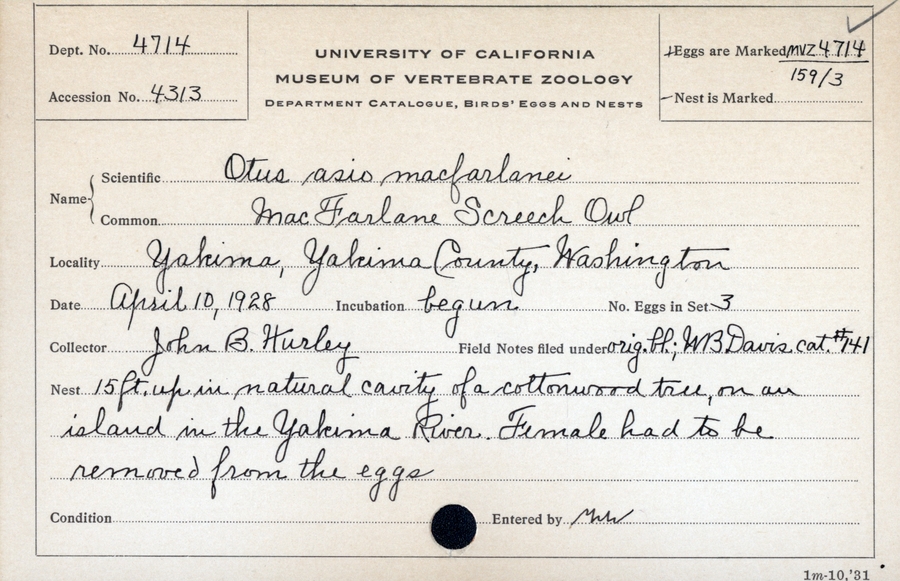 Dept. No. 4714
Accession No. 4313
UNIVERSITY OF CALIFORNIA
MUSEUM OF VERTEBRATE ZOOLOGY
DEPARTMENT CATALOGUE, BIRDS' EGGS AND NESTS
Eggs are Marked MVZ 4714
159/3
Nest is Marked
Name
Scientific Otus asio macfarlanei
Common MacFarlane Screech Owl
Locality Yakima, Yakima County, Washington
Date April 10, 1928 Incubation begun No. Eggs in Set 3
Collector John B. Hurley Field Notes filed under orig. bl.; WB Davis cat. #141
Nest 15 ft. up in natural cavity of a cottonwood tree, on an
island in the Yakima River. Female had to be
removed from the eggs
Condition Entered by
1m-10,'31